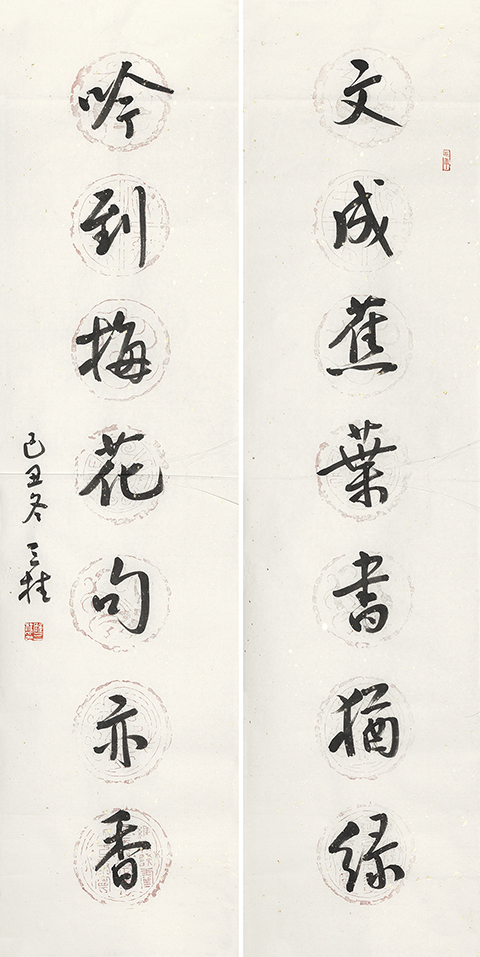 文成蕉葉書猶綠
吟到梅花句亦香
己丑冬 三桂